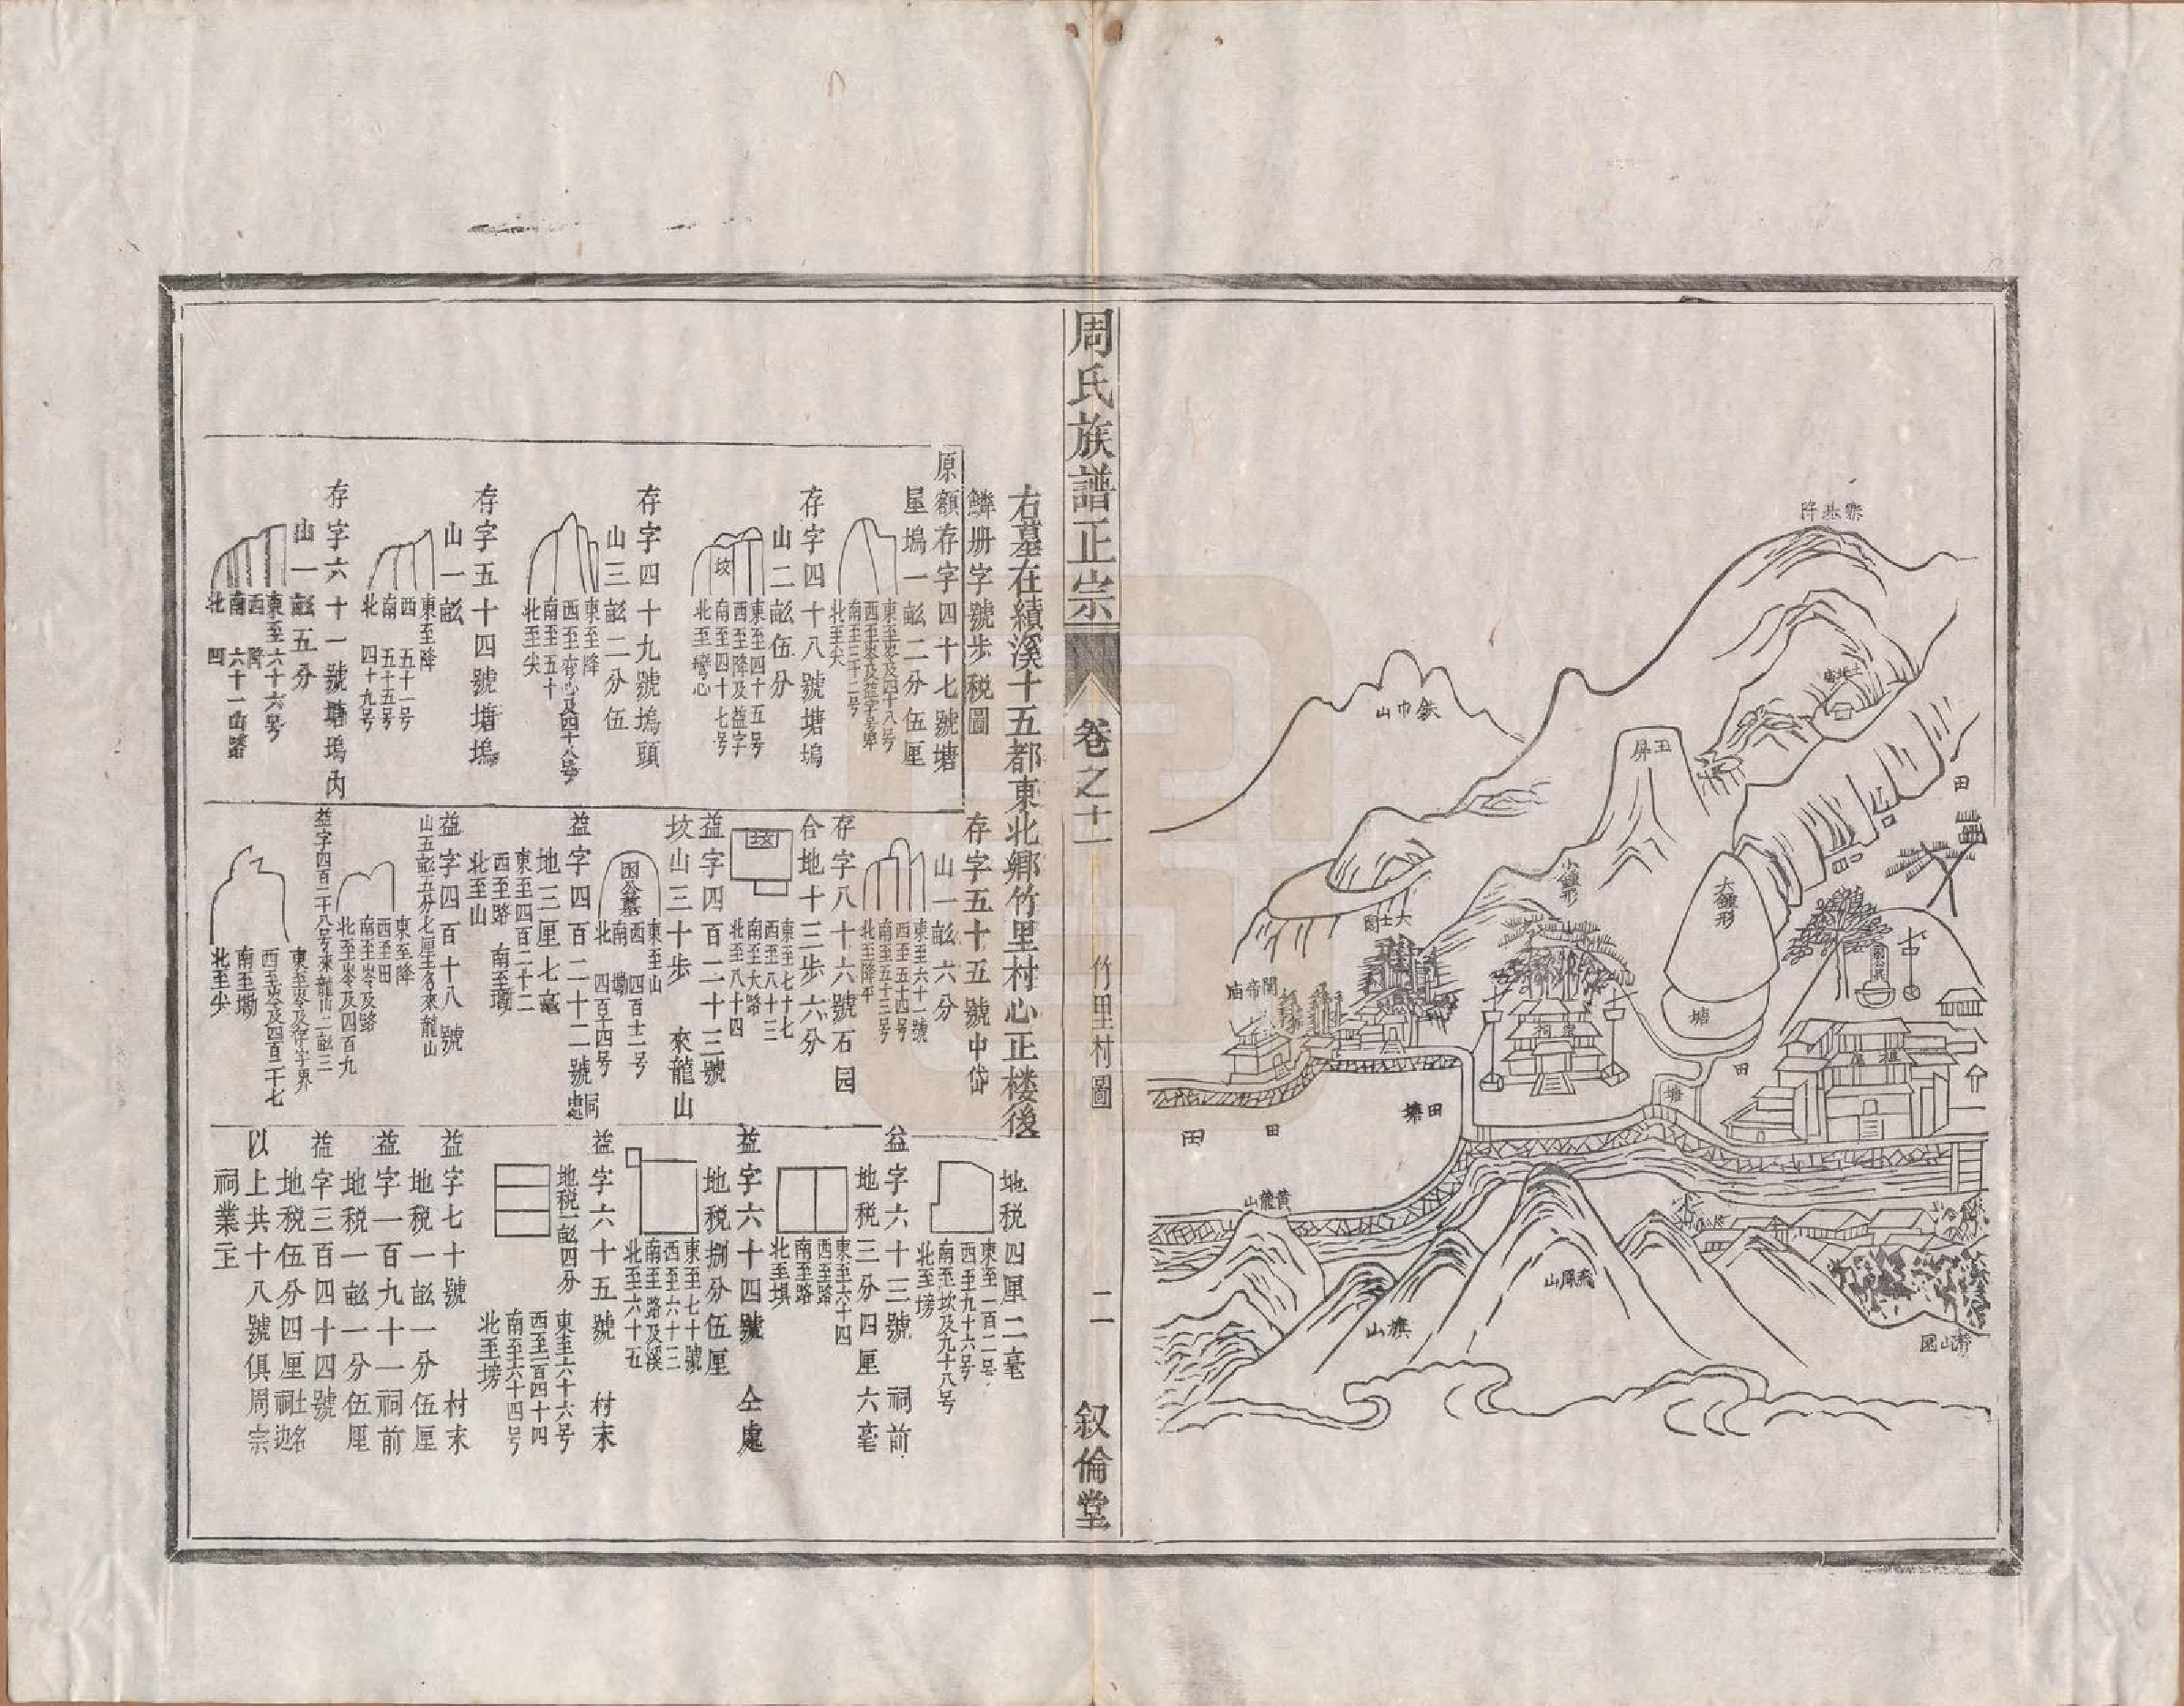 寨基降
鉄巾山
玉屏
土地庙
田
小鐘形
大鐘形
大士閣
關帝庙
古
塘
宗祠
祖屋
田
塘
田塘
田
田
黃龍山
燕鳳山
旗山
周氏族譜正宗
卷之十一
竹里村圖
二
叙倫堂
右墓在績溪十五都東北鄉竹里村心正楼後
鱗册字號步税圖
原額存字四十七號塘
塢一畝二分伍厘
東至峇及四十八号
南至三十二号
北至尖
存字四十八號塘塢
山二畝伍分
東至四十五号
西至降及益字
南至四十七号
北至灣心
坟
存字四十九號塢頭
山三畝二分伍
東至降
西至峇心及四十八号
南至五十
北至尖
存字五十四號塘塢
山一畝
東至降
西 五十一号
南 五十五号
北 四十九号
存字六十一號塘塢内
山一畝五分
東至六十六号
西 降
南 六十一山路
北 凹
存字五十五號中岱
山一畝六分
東至六十一號
西至五十四号
南至五十三号
北至降平
存字八十六號石园
合地十三步六分
東至七十七
西至八十三
南至大路
北至八十四
坟
益字四百二十三號
坟山三十步 來龍山
東至山
西 四百十二号
南 墈
北 四百十四号
益字四百二十二號同處
地二厘七毫
東至四百二十二
西至路 南至墈
北至山
益字四百十八號
山五畝五分七厘土名來龍山
東至降
西至田
南至峇及路
北至峇及四百九
益字四百二十八号來龍山二畝三
東至峇及存字界
西至峇及四百二十七
南至墈
北至尖
地税四厘二毫
東至一百二号
西至九十六号
南至坎及九十八号
北至塝
益字六十三號 祠前
地税三分四厘六毫
東至六十四
西至路
南至路
北至塝
益字六十四號 仝處
地税捌分伍厘
東至七十號
西至六十三
南至路及溪
北至六十五
益字六十五號 村末
地税一畝四分
東至六十六号
西至一百四十四
南至六十四号
北至塝
益字七十號 村末
地税一畝一分伍厘
益字一百九十一祠前
地税一畝一分伍厘
益字三百四十四號
地税伍分四厘
以上共十八號俱周宗
祠業主